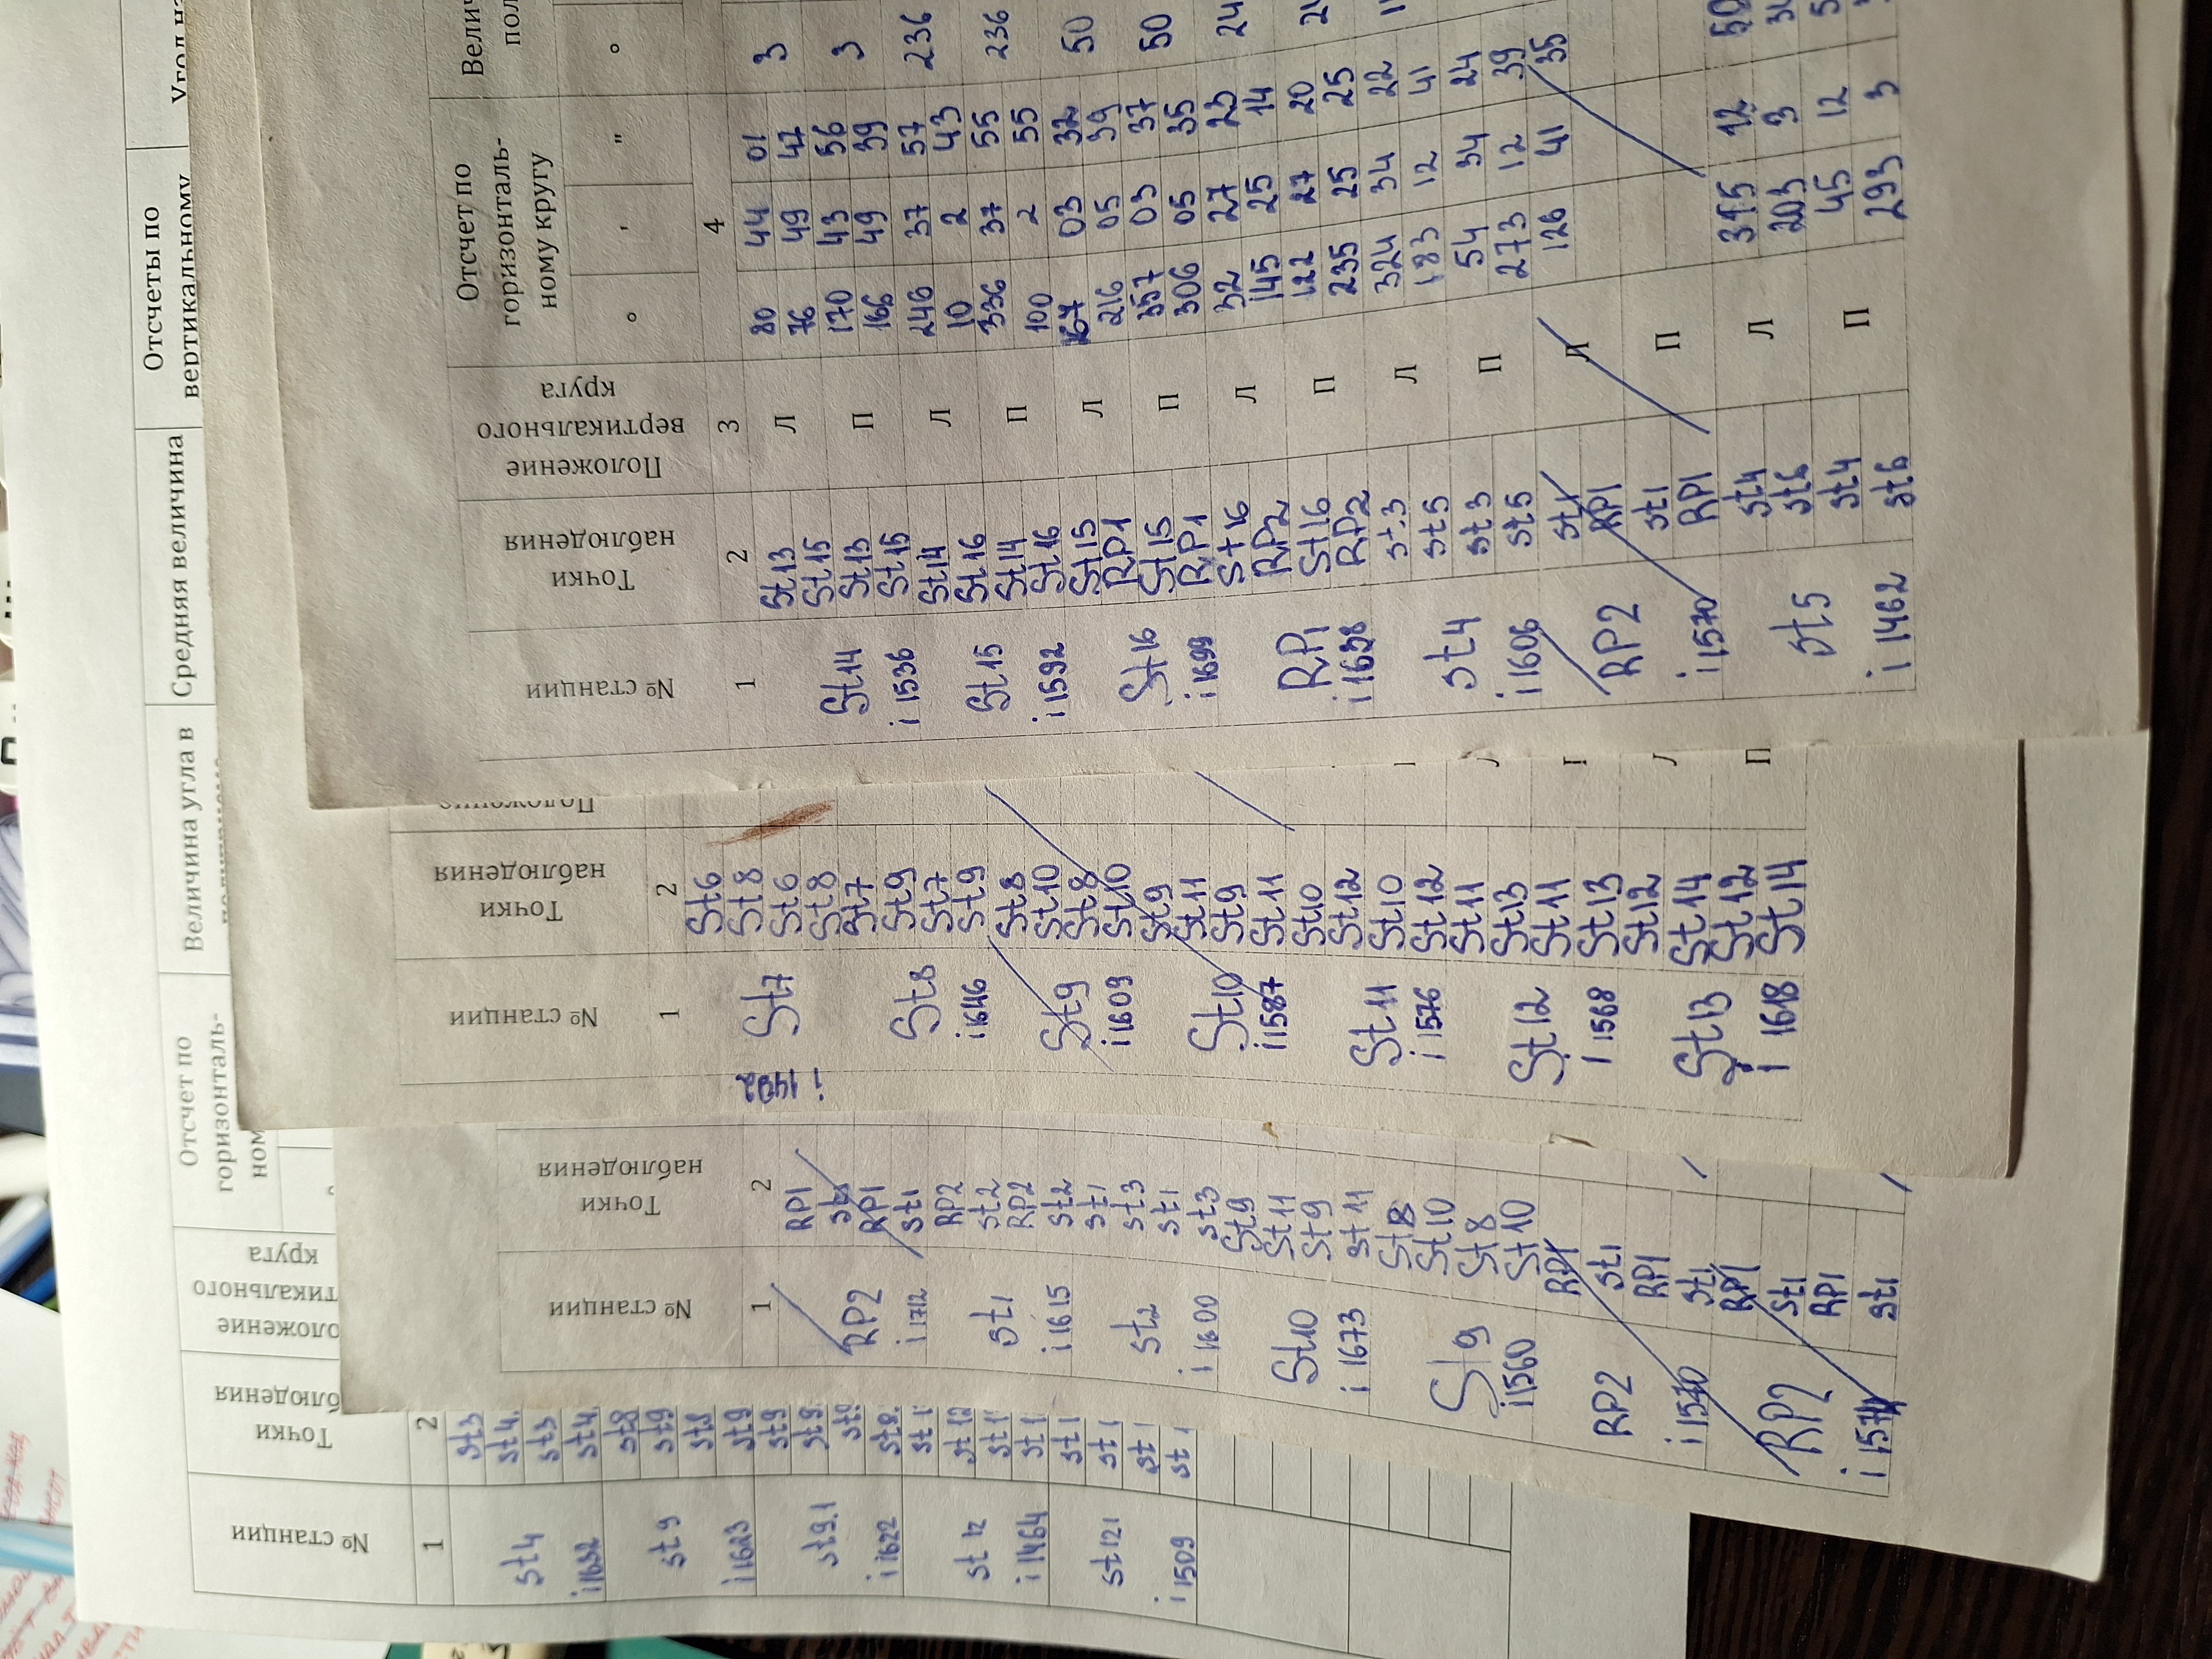 Отсчеты по
вертикальному
Средняя величина
Величина угла в
Отсчет по
горизонталь-
круга
Точки
№ станции
1
2
st4
i 1632
st3
st4
st3
st4
st9
i 1623
st8
st9
st8
st9
st9.1
i 1622
st9
st9
st 12
i 1464
st 12
st 121
i 1509
№ станции
Точки
наблюдения
1
2
RP2
i 1712
RP1
RP1
st1
st1
i 1615
RP2
st2
RP2
st2
st2
i 1600
st1
st3
st1
st3
St10
i 1673
St9
St11
St9
St11
St9
i 1560
St8
St10
St8
St10
RP2
i 1570
RP1
st1
RP1
st1
RP2
RP1
st1
RP1
st1
№ станции
Точки
наблюдения
Положение
1
2
St7
i 1492
St6
St8
St6
St8
St8
i 1646
St7
St9
St7
St9
St9
i 1609
St8
St10
St8
St10
St10
i 1587
St9
St11
St9
St11
St11
i 1576
St10
St12
St10
St12
St12
i 1568
St11
St13
St11
St13
St13
i 1618
St12
St14
St12
St14
П
№ станции
Точки
наблюдения
Положение
вертикального
круга
Отсчет по
горизонталь-
ному кругу
Велич
пол
° ' " °
1 2 3 4
St14
i 1536
St13 Л 80 44 01 3
St15 76 49 47
St13 П 170 43 56 3
St15 166 49 39
St15
i 1592
St14 Л 246 37 57 236
St16 10 2 43
St14 П 336 37 55 236
St16 100 2 55
St16
i 1699
St15 Л 167 03 32 50
RP1 216 05 39
St15 П 357 03 37 50
RP1 306 05 35
RP1
i 1638
St16 Л 32 27 23 24
RP2 145 25 14
St16 П 122 27 20
RP2 235 25 25
st4
i 1606
st3 Л 324 34 22
st5 183 12 41
st3 П 54 34 24
st5 273 12 39
RP2
i 1570
st1 Л 126 41 35
RP1
st1 П
RP1
st5
i 1462
st4 Л 315 12 50
st6 203 3
st4 П 45 12
st6 293 3